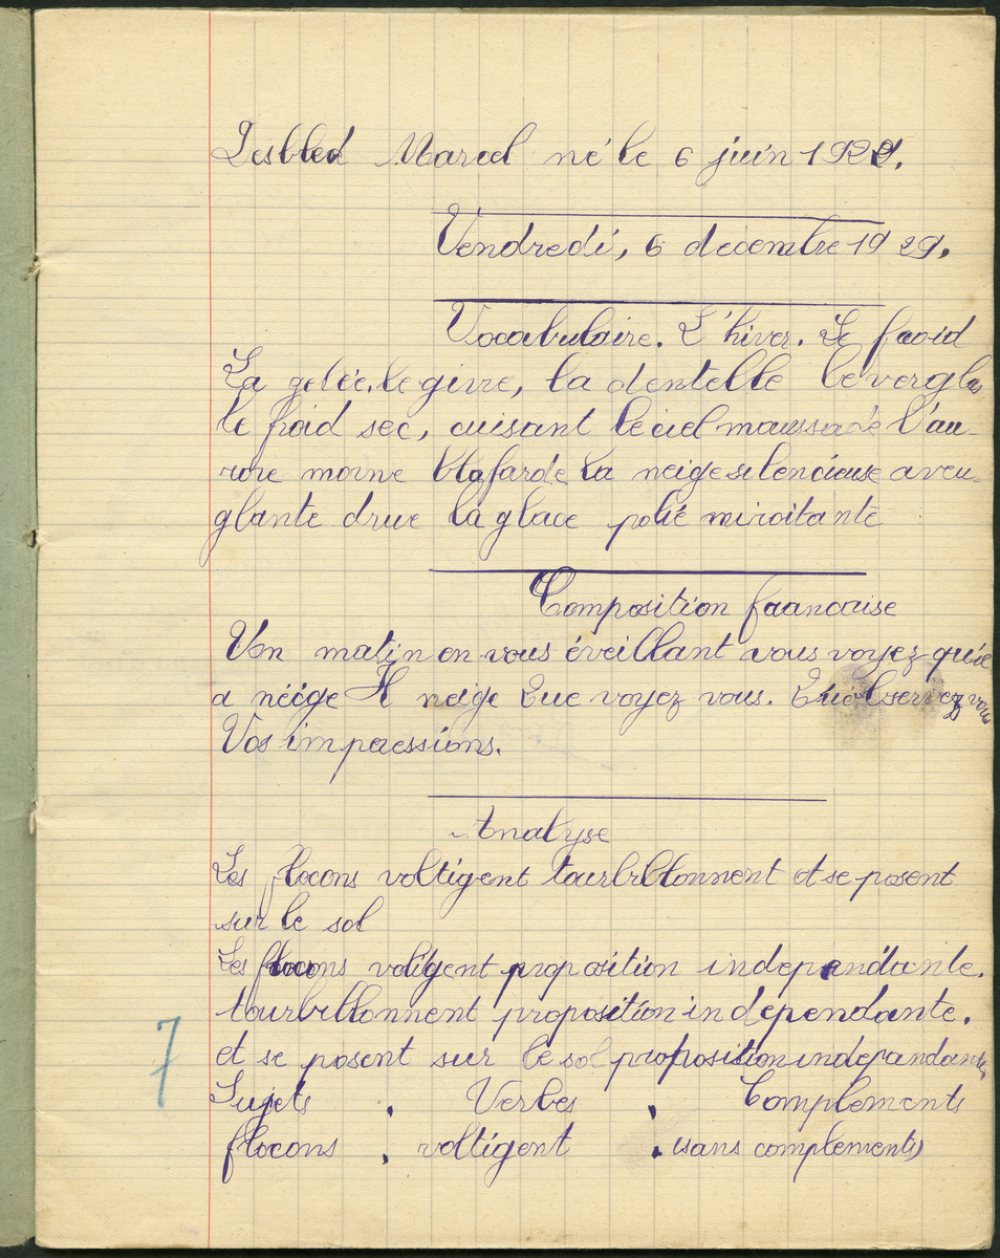 Lesbled Marcel né le 6 juin 1920.
Vendredi, 6 decembre 1929.
Vocabulaire. L'hiver. Le froid
La gelée, le givre, la dentelle le verglas
le froid sec, cuisant le ciel maussade l'au-
rore morne blafarde La neige silencieuse aveu-
glante drue la glace polie miroitante
Composition francaise
Un matin en vous éveillant vous voyez qu'il
a néige Il neige Que voyez vous. Qu'observez vous
Vos impressions.
Analyse
Les flocons voltigent tourbillonnent et se posent
sur le sol
Les flocons voltigent proposition independante.
tourbillonnent proposition independante.
et se posent sur le sol proposition independante
7
Sujets . Verbes . Complements
flocons . voltigent . (sans complements)